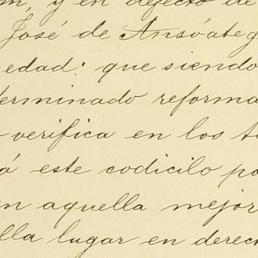 m, y en defecto de
José de Ansóateg
edad: que siendo
terminado reforma
verifica en los té
á este codicilo po
en aquella mejor
lla lugar en derech